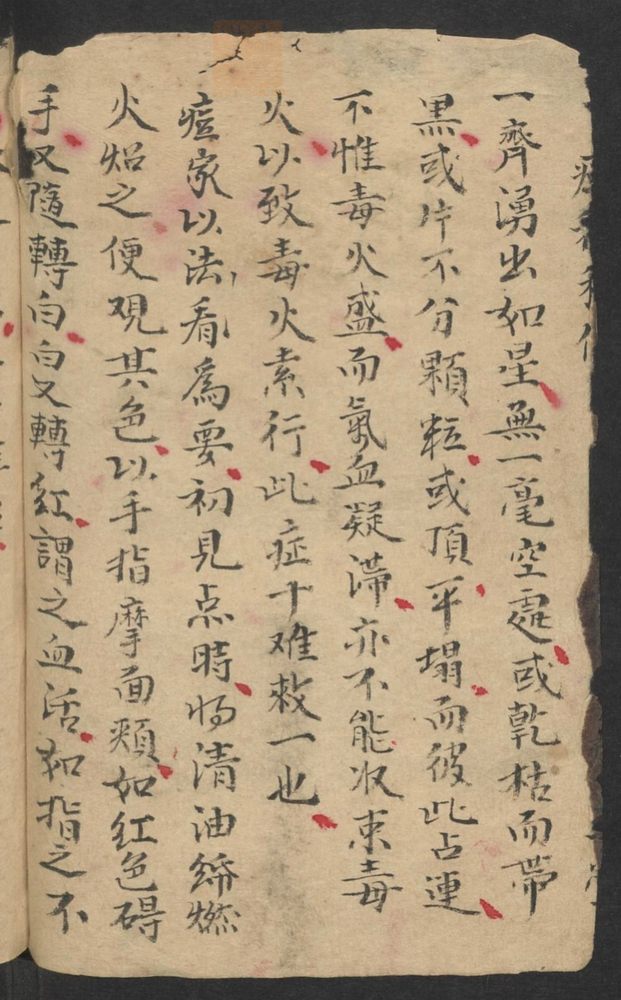 一齊湧出如星無一毫空處或乾枯而帶
黑或片不分顆粒或頂平塌而彼此占連
不惟毒火盛而氣血凝滯亦不能收束毒
火以致毒火素行此症十难救一也
痘家以法看為要初見点時将清油綿燃
火焰之便观其色以手指摩面頰如红色碍
手又隨轉白白又轉紅謂之血活如指之不